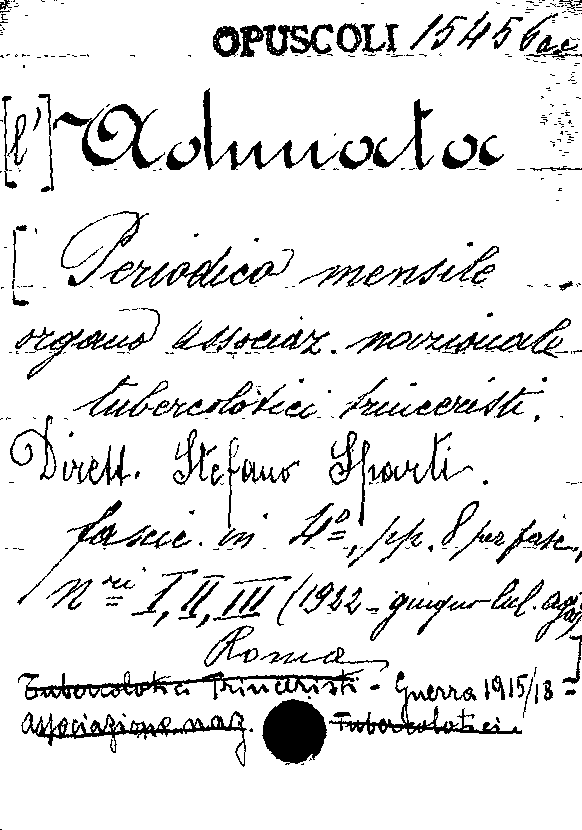 OPUSCOLI 15456
[l'] Adunata
[Periodico mensile
organo associaz. nazionale
tubercolotici trinceristi.
Dirett. Stefano Sparti.
fascic. in 4º, pp. 8 per fasc.,
nri I, II, III (1922 - giugno-lul. ago)
Roma ]
Tubercolotici Trinceristi - Guerra 1915/18 =
Associazione naz. Tubercolotici.